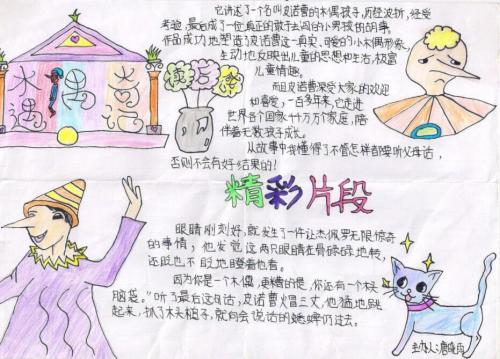 它讲述了一个名叫皮诺曹的木偶孩子,历经波折,经受
考验,最后成了一位真正的敢于去闯的小男孩的故事。
作品成功地塑造了皮诺曹这一真实、可爱的小木偶形象,
生动地反映出儿童的思想和生活,极富
儿童情趣。
而且皮诺曹深受大家的欢迎
和喜爱,一百多年来,它走进
世界各个国家,千万万个家庭,陪
伴着无数孩子成长。
从故事中我懂得了不管怎样都要听父母话,
否则不会有好结果的!
木偶奇遇
读后感
精彩片段
眼睛刚刻好,就发生了一件让杰佩罗无限惊奇
的事情,他发觉这两只眼睛在骨碌碌地转,
还眨也不眨地瞪着他看。
因为你是一个木偶,更糟的是,你还有一个木头
脑袋。”听了最后这句话,皮诺曹火冒三丈,他猛地跳
起来,抓了木头槌子,就向会说话的蟋蟀扔过去。